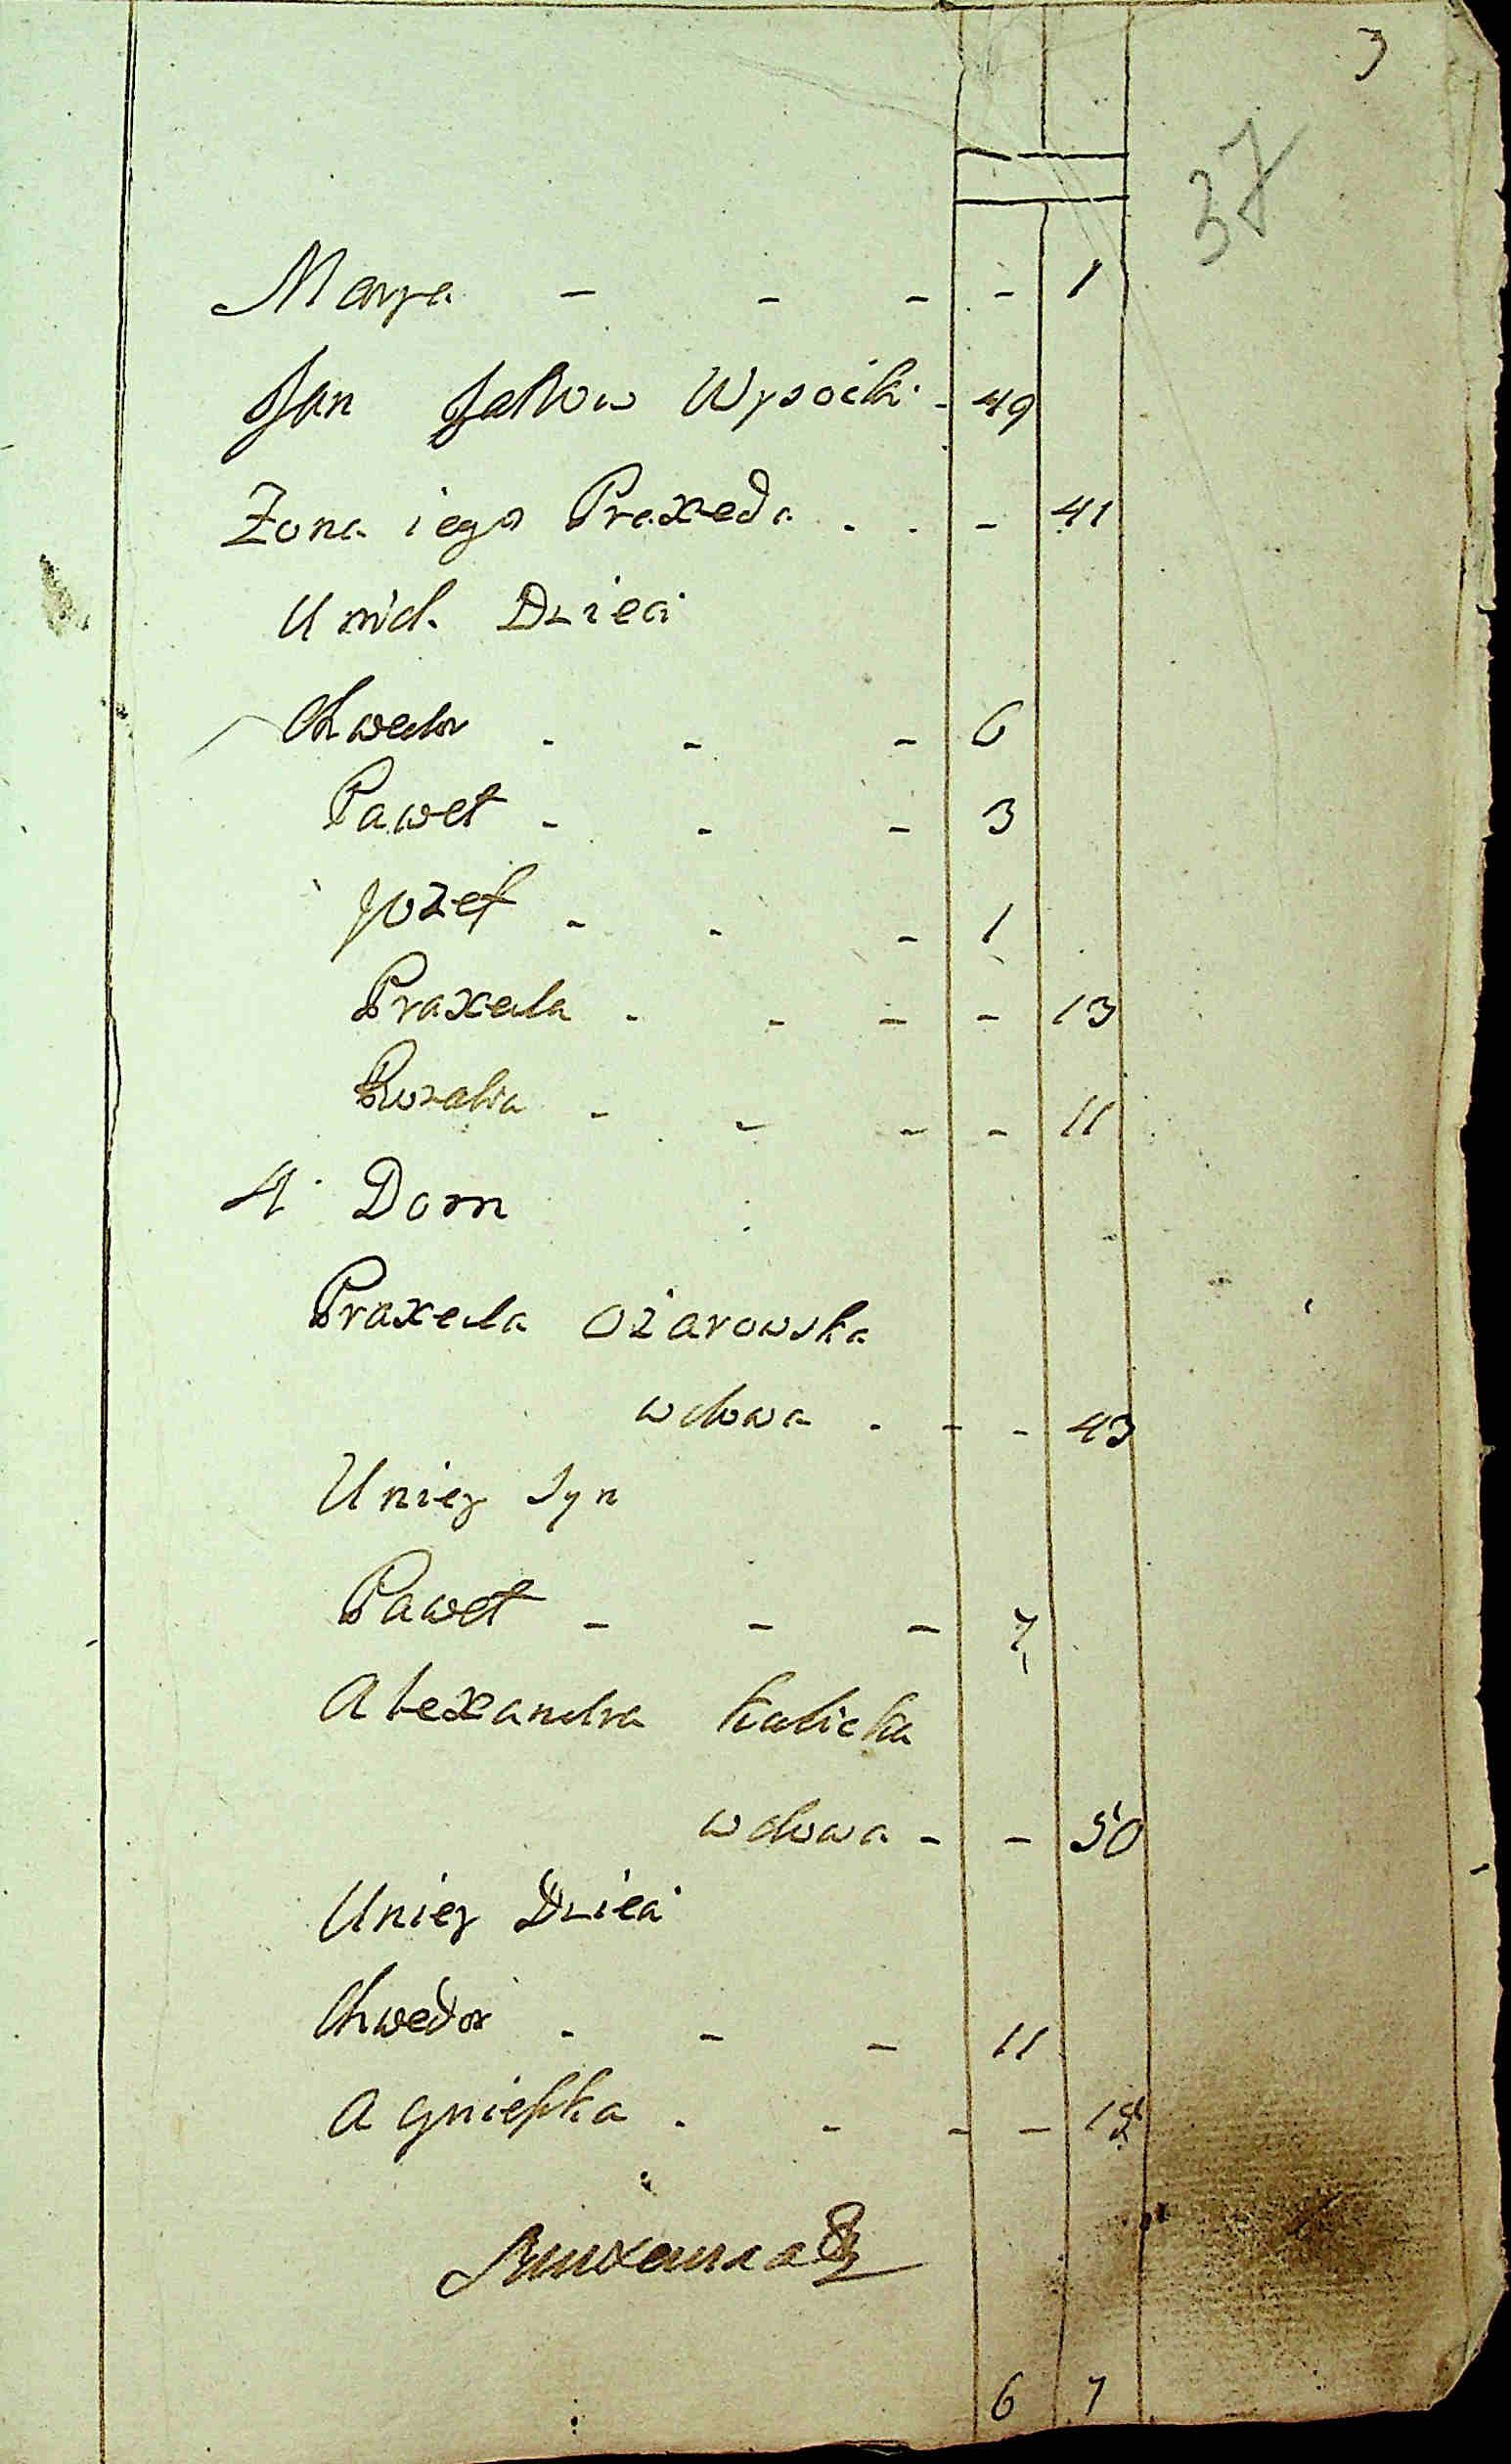 3
37
Marya - - - - 1
Jan Jakow Wysocki - 49
Zona iego Praxeda - - - 41
U nich Dzieci
Chwedor - - - 6
Paweł - - - 3
Jozef - - - 1
Praxeda - - - - 13
Rozalia - - - - 11
4 Dom
Praxeda Ożarowska
wdowa - - - 43
Uniey Syn
Paweł - - - 7
Alexandra Kalicka
wdowa - - 50
Uniey Dzieci
Chwedor - - - 11
Agnieszka - - - -
6 7